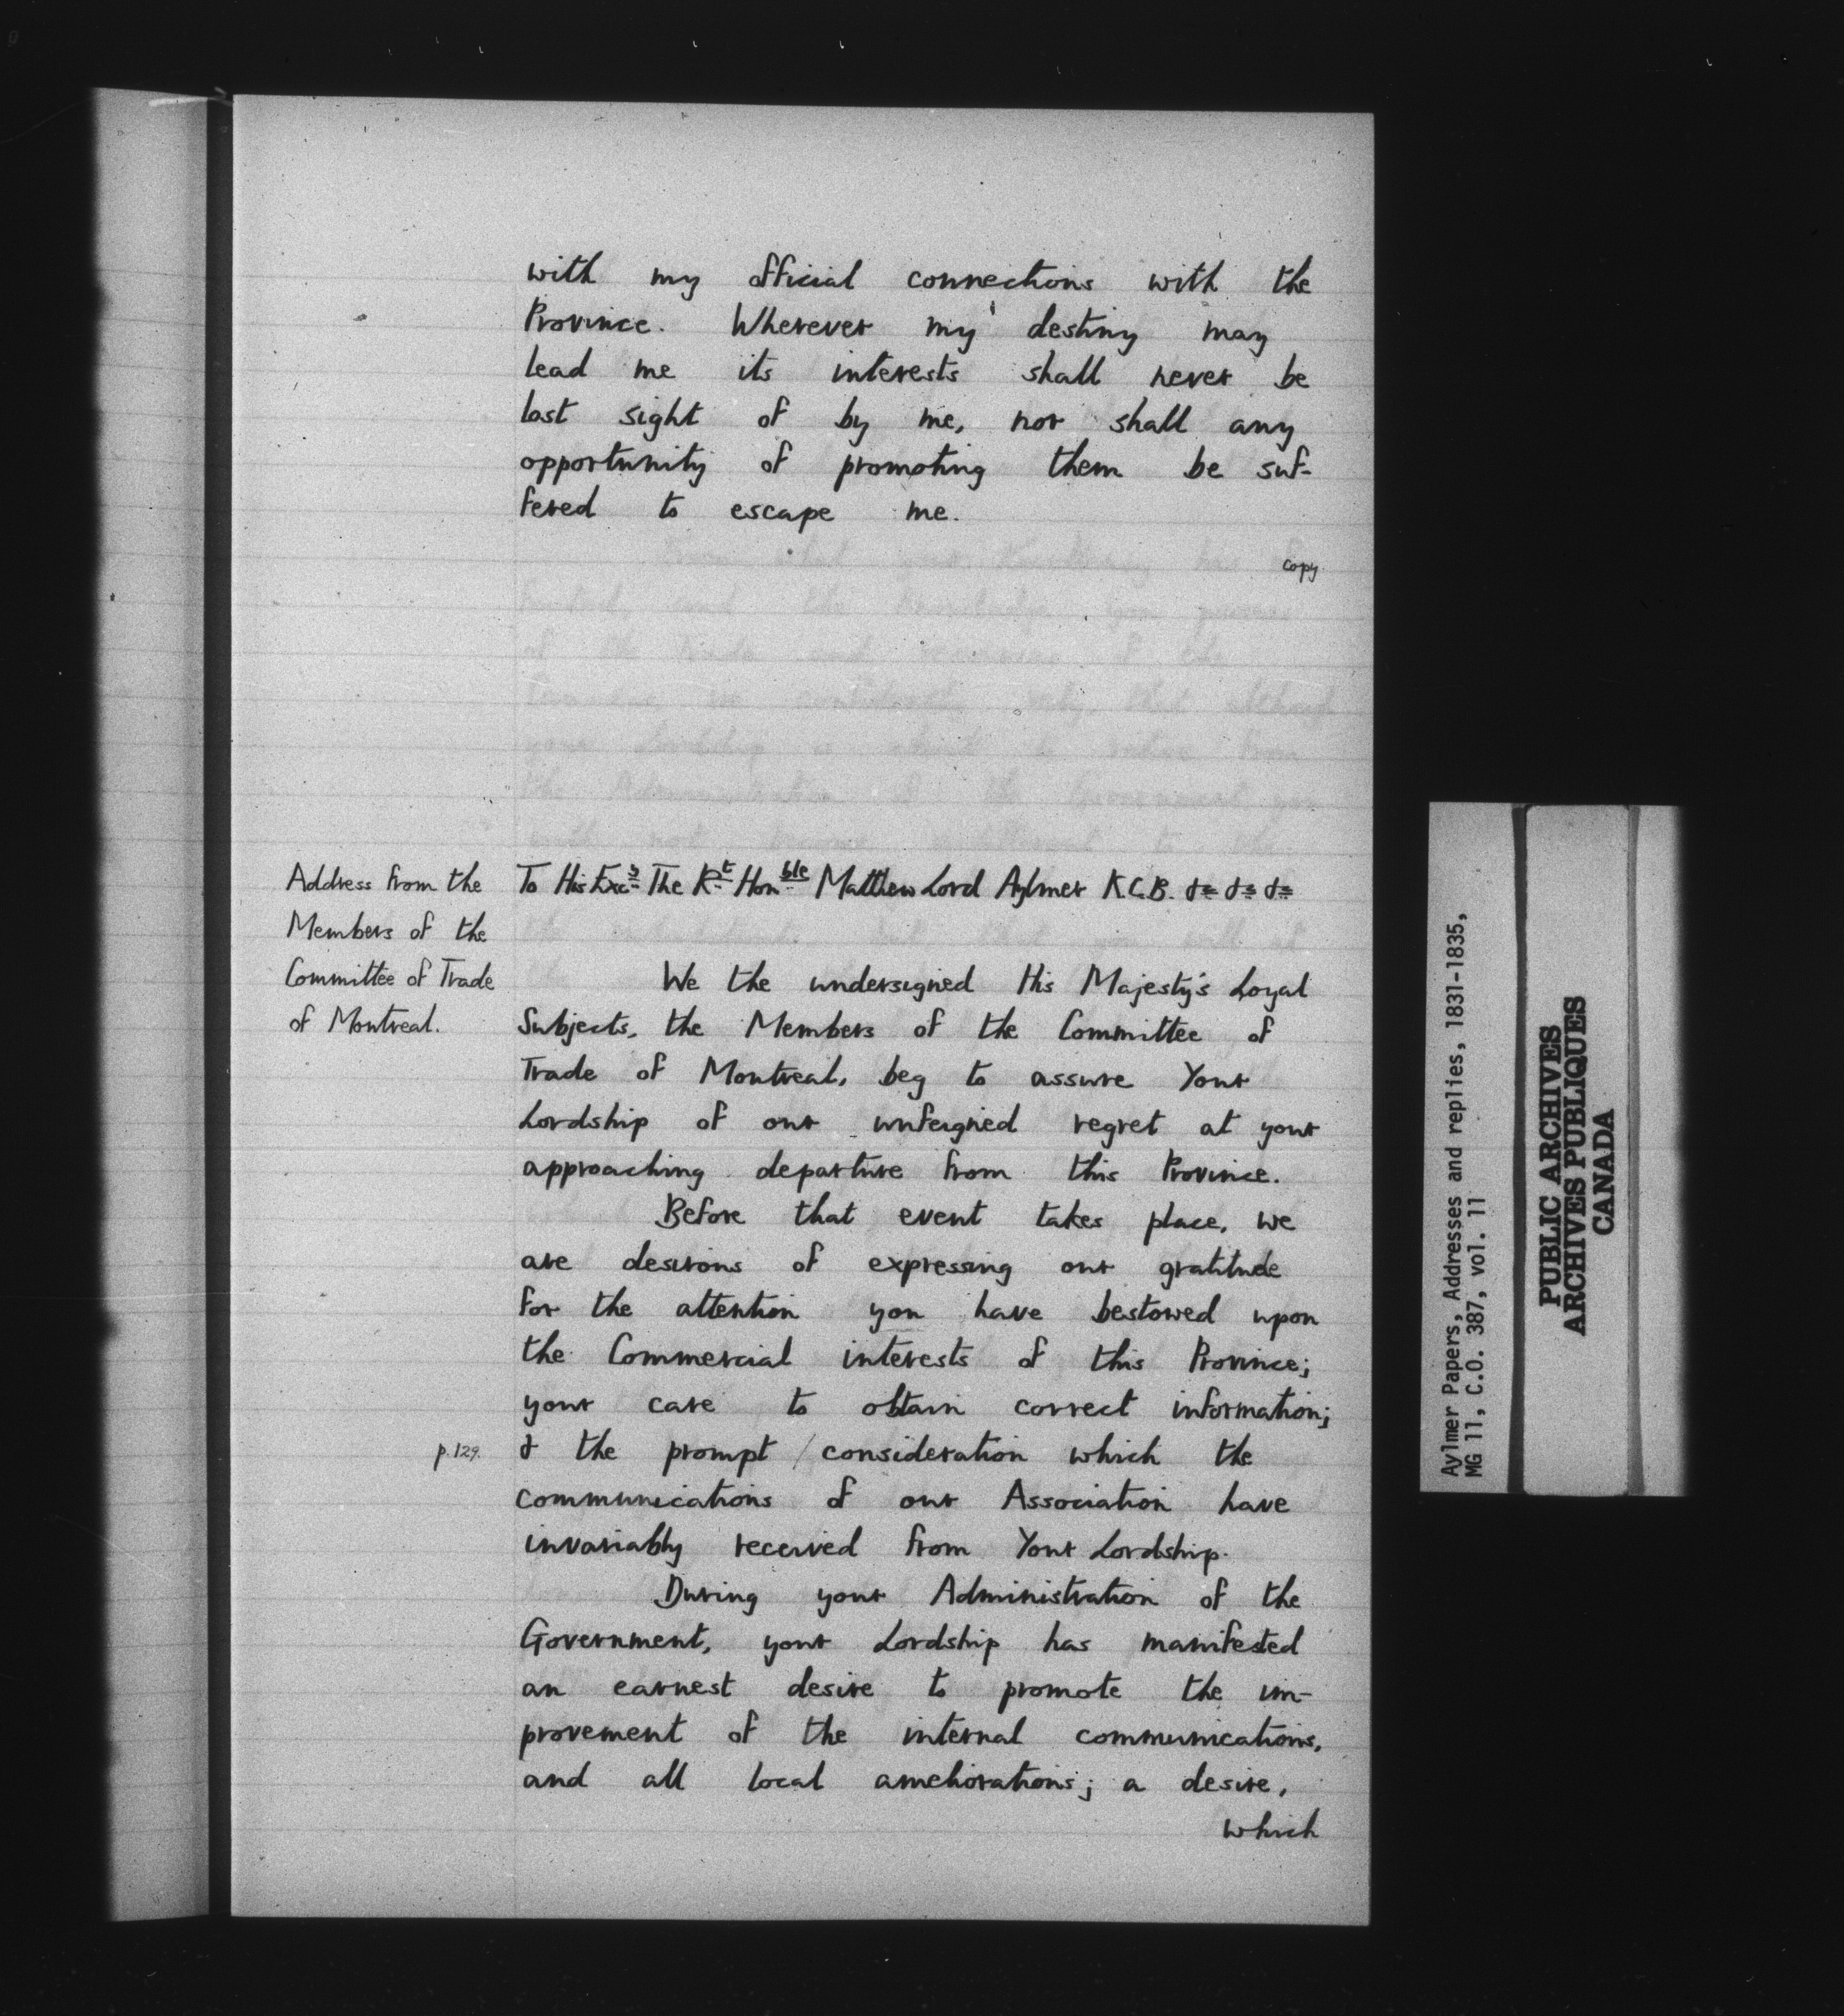 with my official connections with the
Province. Wherever my destiny may
lead me its interests shall never be
lost sight of by me, nor shall any
opportunity of promoting them be suf-
fered to escape me.
copy
Address from the
Members of the
Committee of Trade
of Montreal.
To His Excy The Rt Honble Matthew Lord Aylmer K.C.B. &c &c &c
We the undersigned His Majesty's Loyal
Subjects, the Members of the Committee of
Trade of Montreal, beg to assure Your
Lordship of our unfeigned regret at your
approaching departure from this Province.
Before that event takes place, we
are desirous of expressing our gratitude
for the attention you have bestowed upon
the Commercial interests of this Province;
your care to obtain correct information;
p.129. & the prompt / consideration which the
communications of our Association have
invariably received from Your Lordship.
During your Administration of the
Government, your Lordship has manifested
an earnest desire to promote the im-
provement of the internal communications,
and all local ameliorations; a desire,
which
Aylmer Papers, Addresses and replies, 1831-1835,
MG 11, C.O. 387, vol. 11
PUBLIC ARCHIVES
ARCHIVES PUBLIQUES
CANADA